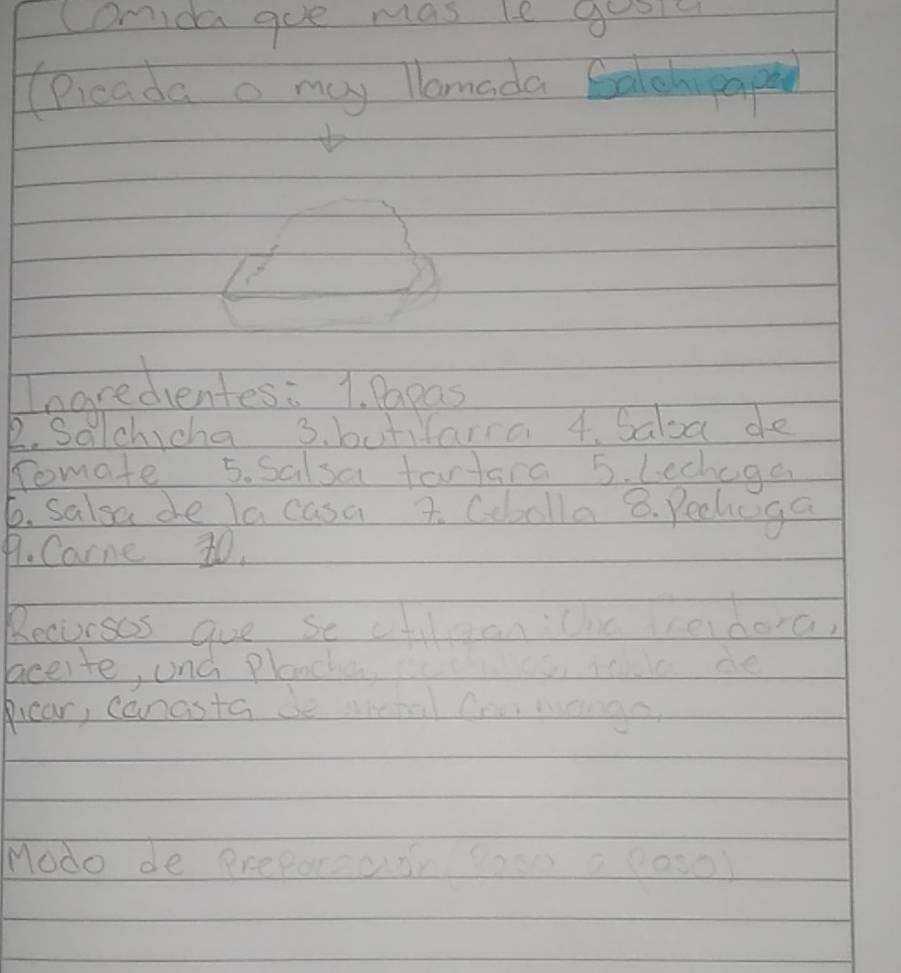 Comida que mas le gusta
(Picada o muy llamada Salchipapa)
Ingredientes: 1. Papas
2. Salchicha 3. butifarra 4. Salsa de
Tomate 5. Salsa tartara 5. Lechuga
6. Salsa de la casa 7. Cebolla 8. Pechuga
9. Carne 10.
Recursos que se utilizan: Una freidora,
aceite, una Plancha, tabla de
picar, canasta de metal con mango,
Modo de Preparación (Paso a Paso)